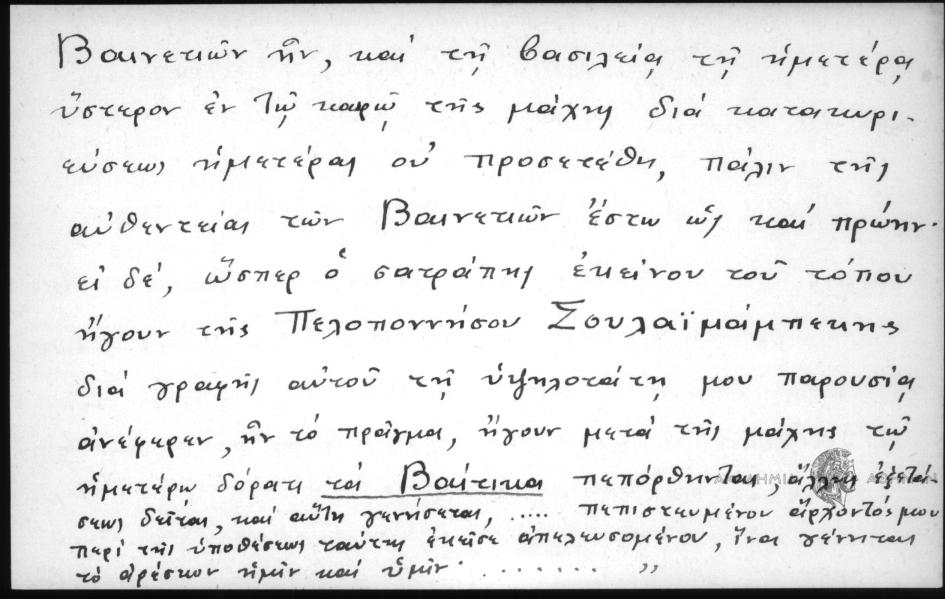 Βαινετιῶν ἦν, καί τῇ βασιλείᾳ τῇ ἡμετέρᾳ
ὕστερον ἐν τῷ καιρῷ τῆς μάχης διά κατακυρι-
εύσεως ἡμετέρας οὐ προσετέθη, πάλιν τῆς
αὐθεντείας τῶν Βαινετιῶν ἔστω ὡς καί πρώην·
εἰ δέ, ὥσπερ ὁ σατράπης ἐκείνου τοῦ τόπου
ἤγουν τῆς Πελοποννήσου Σουλαϊμάμπεκης
διά γραφῆς αὐτοῦ τῇ ὑψηλοτάτῃ μου παρουσίᾳ
ἀνέφερεν, ἦν τό πρᾶγμα, ἤγουν μετά τῆς μάχης τῷ
ἡμετέρῳ δόρατι τά Βάτικα πεπόρθηνται, ἄλλης ἐξετά-
σεως δεῖται, καί αὕτη γενήσεται, ..... πεπιστευμένου ἄρχοντός μου
περί τῆς ὑποθέσεως ταύτης ἐκεῖσε ἀπελευσομένου, ἵνα γένηται
τό ἀρέσκον ἡμῖν καί ὑμῖν · . . . . . . . ”